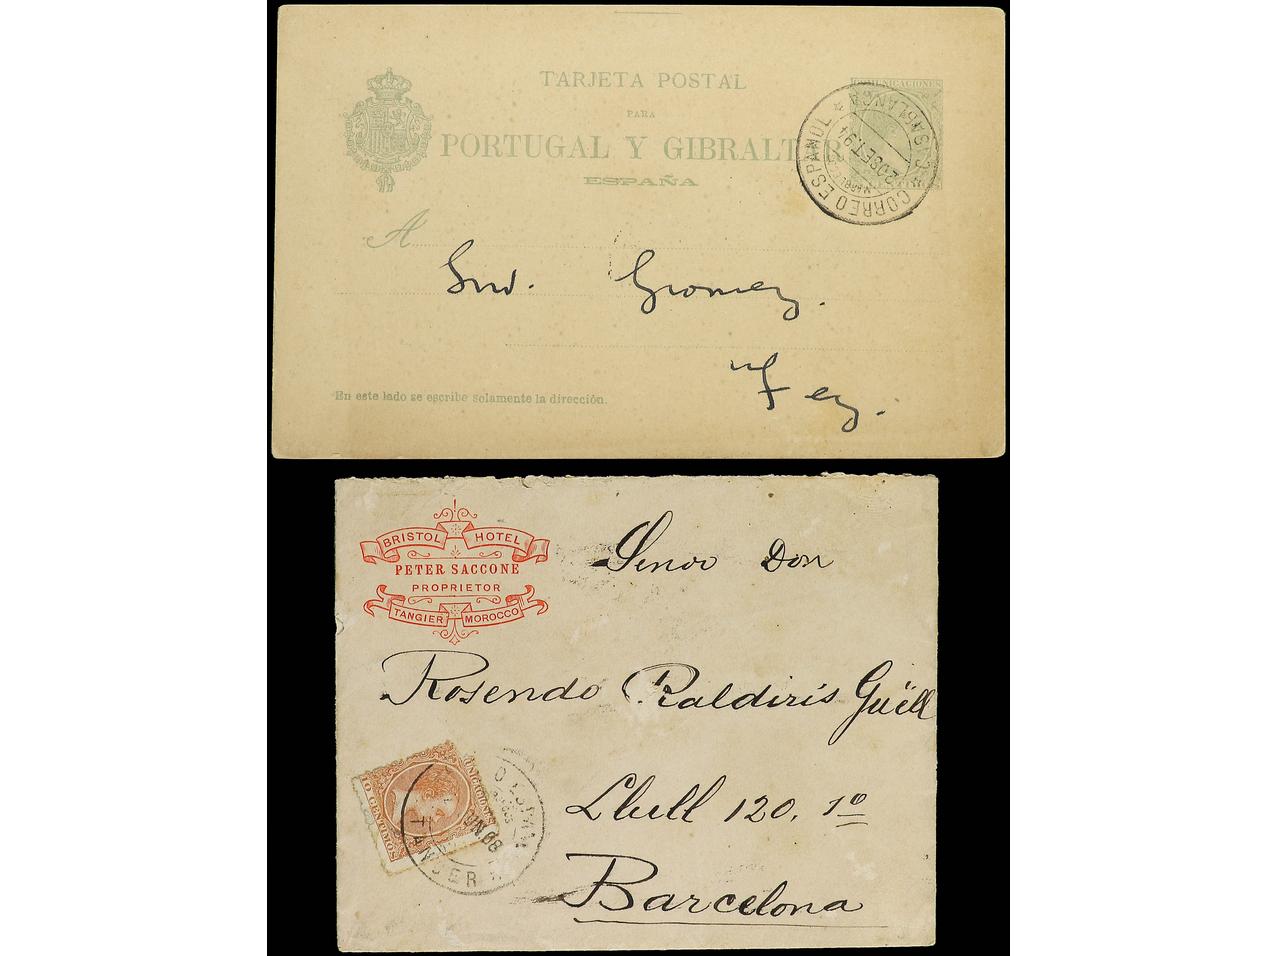 TARJETA POSTAL
PARA
PORTUGAL Y GIBRALTAR
ESPAÑA
COMUNICACIONES
CORREO ESPAÑOL * CASABLANCA *
20 SET 94
A
Gomez.
Fez.
En este lado se escribe solamente la dirección.
BRISTOL HOTEL
PETER SACCONE
PROPRIETOR
TANGIER MOROCCO
Senor Don
Rosendo Raldiris Güell
Llull 120, 1º
Barcelona
10 CENTIMOS
TANGER